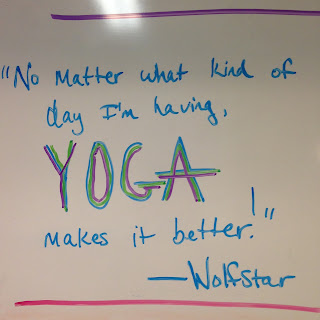 "No Matter what kind of
day I'm having,
YOGA
makes it better!"
—Wolfstar